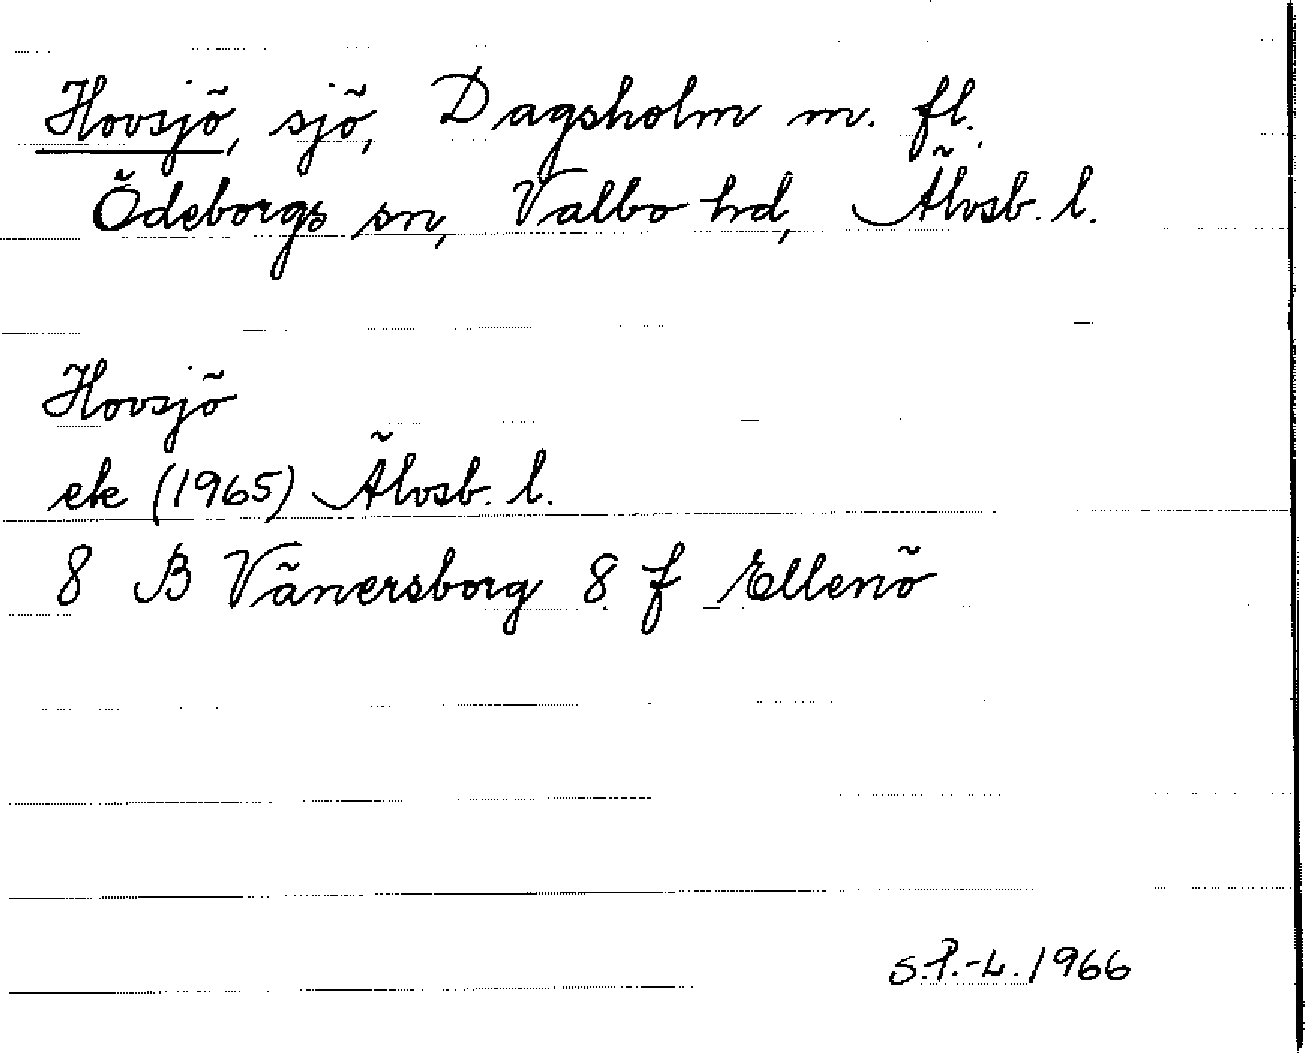 Hovsjö, sjö, Dagsholm m. fl.
Ödeborgs sn, Valbo hd, Älvsb. l.
Hovsjö
ek (1965) Älvsb. l.
8 B Vänersborg 8 f Ellenö
S.P.-L. 1966